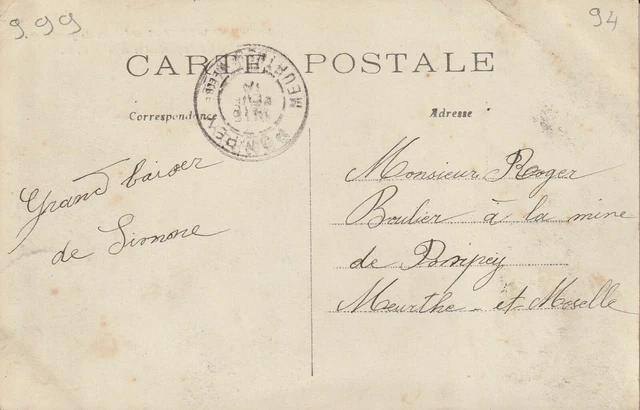 9.99
94
CARTE POSTALE
Correspondence
Adresse
POMPEY
Grand baiser
de Simone
Monsieur Roger
Boulier à la mine
de Pompey
Meurthe - et Moselle